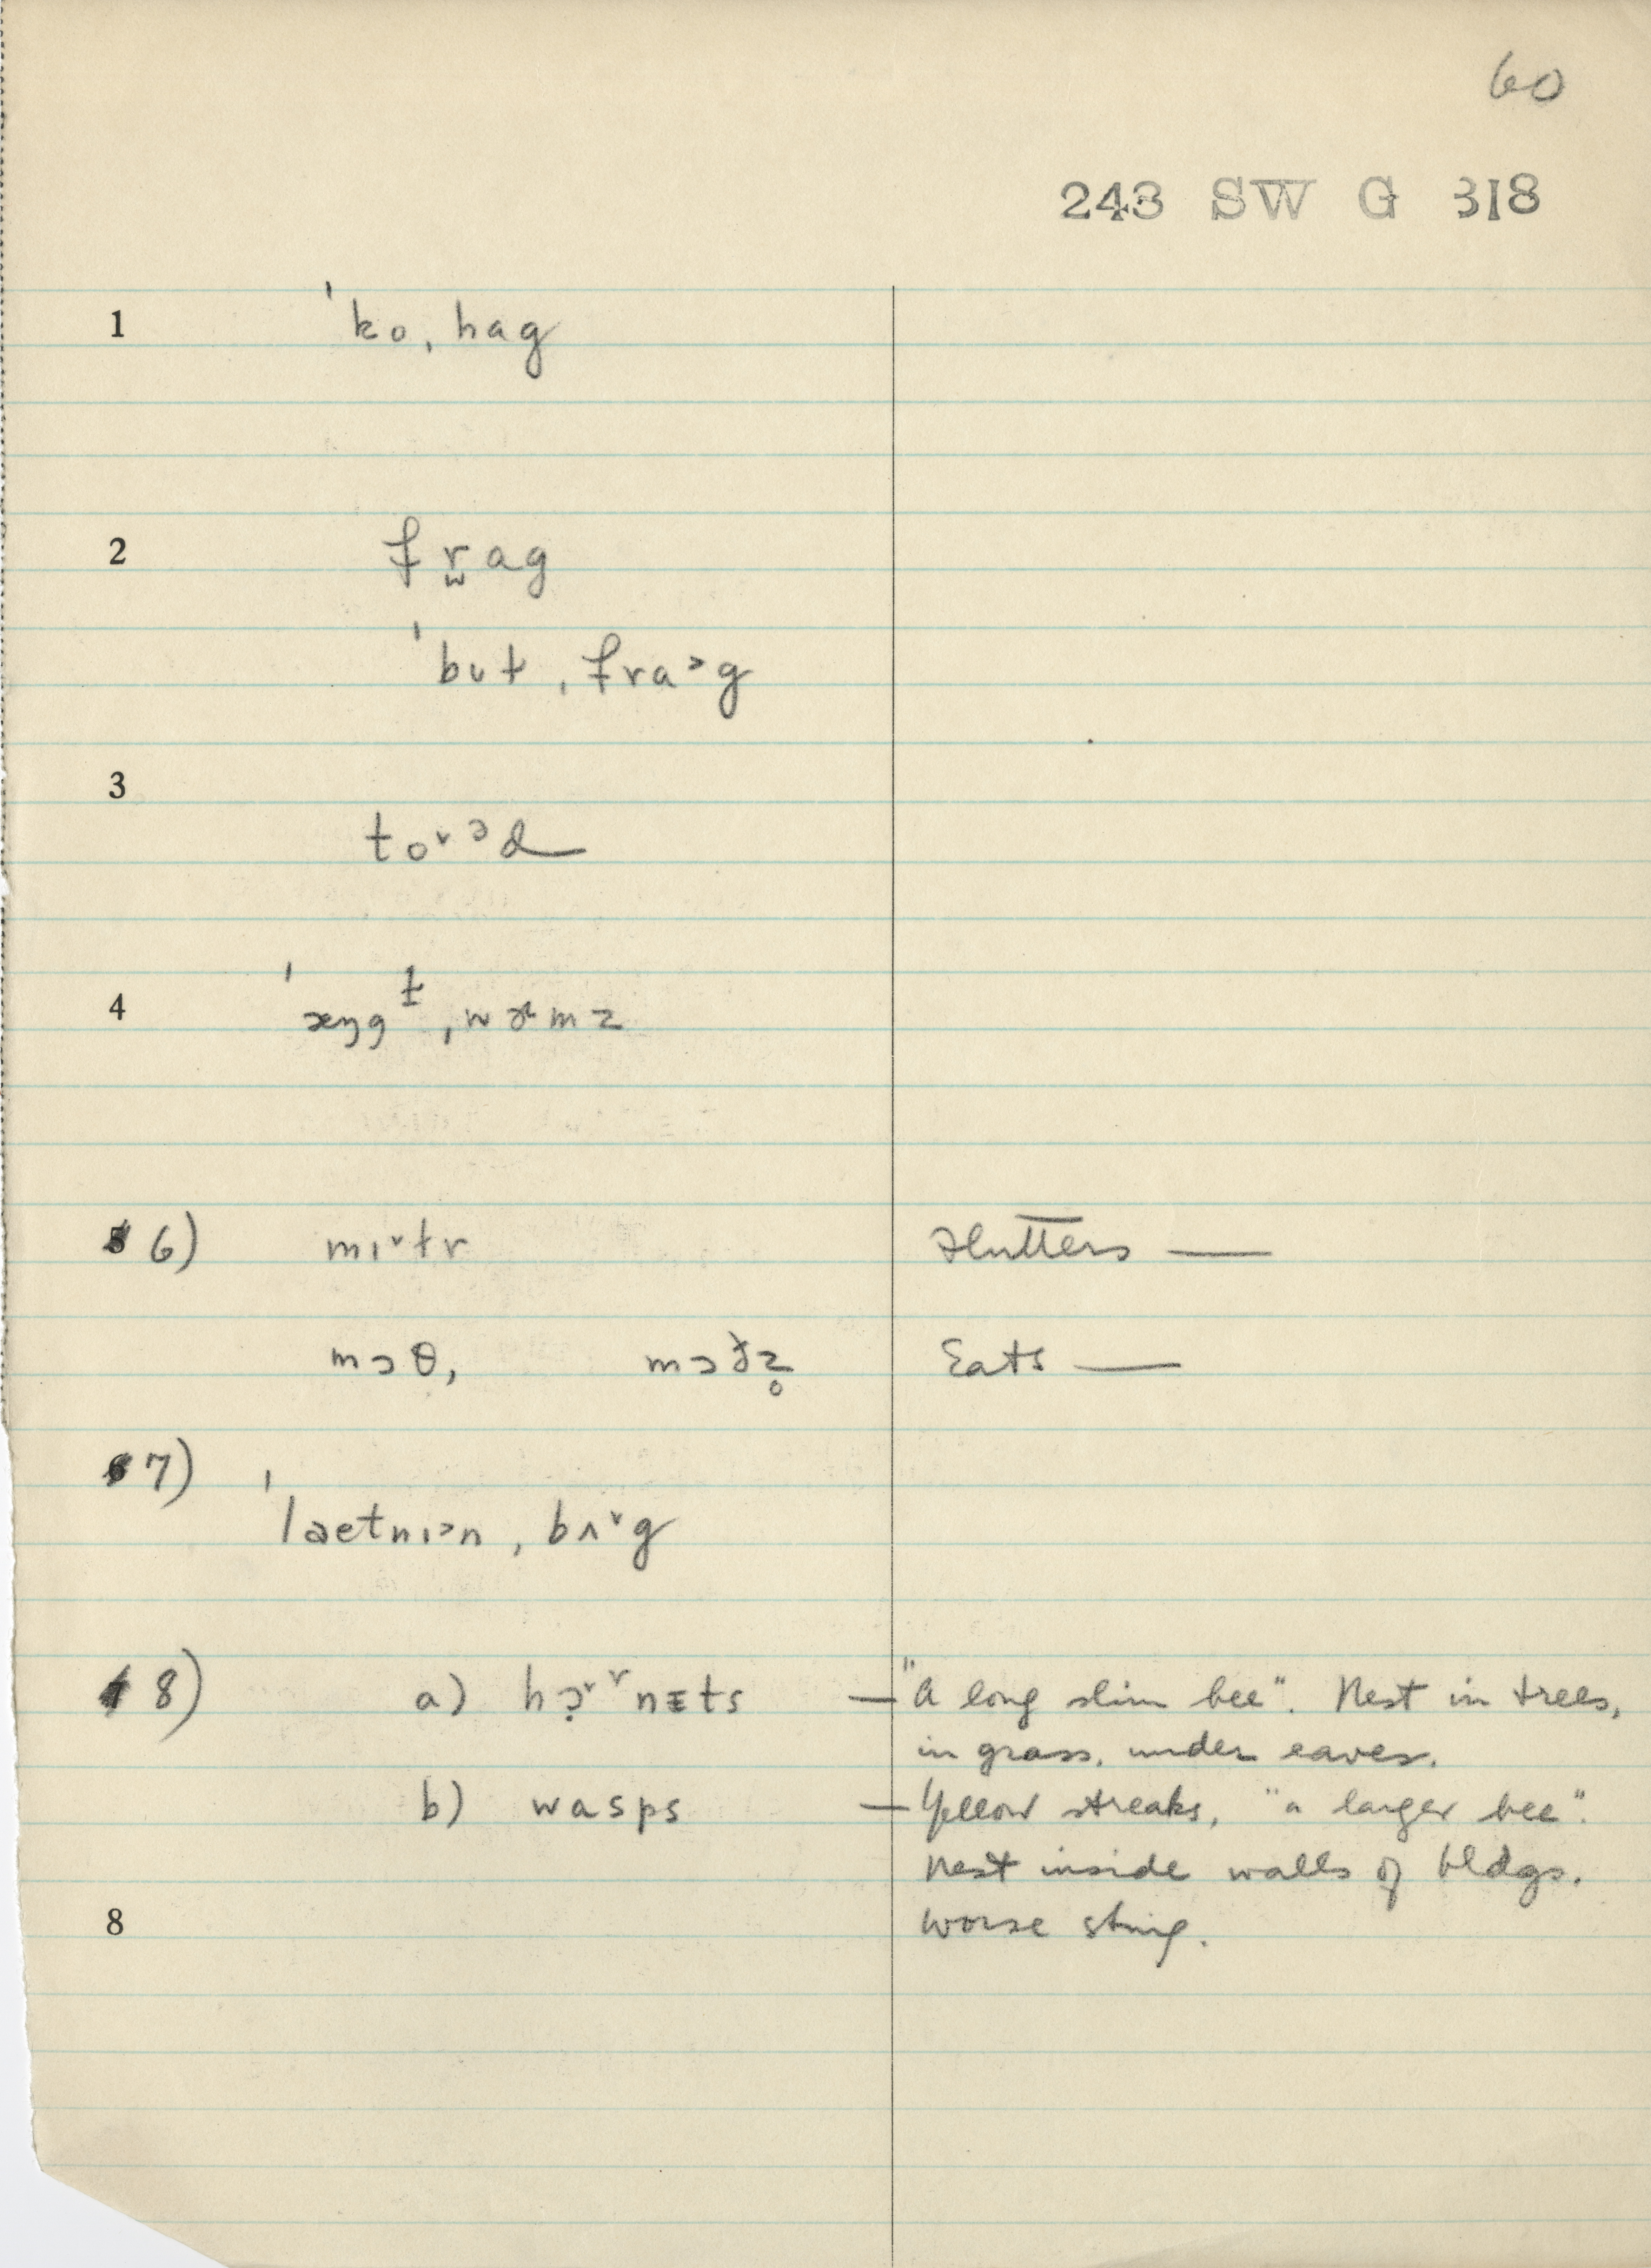 60
243 SW G 318
1 ˈko ˌhag
2 fr̫ag
ˈbʊt ˌfra˃g
3
to˅ᵊd
4 ˈæŋgɫ ˌwɚmz
5 6) mɪ˅tr Flutters —
mɔθ, mɔðz̥ Eats —
6 7)
ˈlaetnɪ˃n ˌbʌ˅g
7 8) a) hɔ̣˅ʳnɪts — "A long slim bee". Nest in trees,
in grass, under eaves.
b) wasps — Yellow streaks, "a larger bee".
Nest inside walls of bldgs.
8 Worse sting.